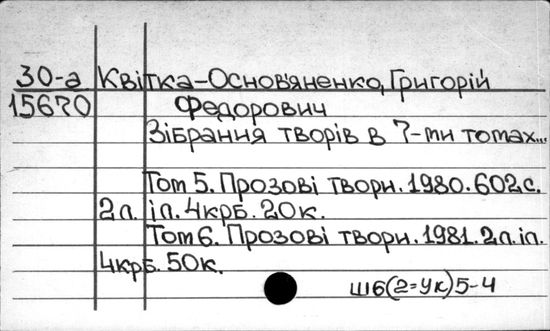 30-а Квітка-Основ'яненко, Григорій
15670 Федорович
Зібрання творів в 7-ми томах...
Том 5. Прозові твори. 1980. 602 с.
2 л. іл. 4крб. 20к.
Том 6. Прозові твори. 1981. 2л. іл.
4крб. 50к.
Ш6(2=Ук)5-4